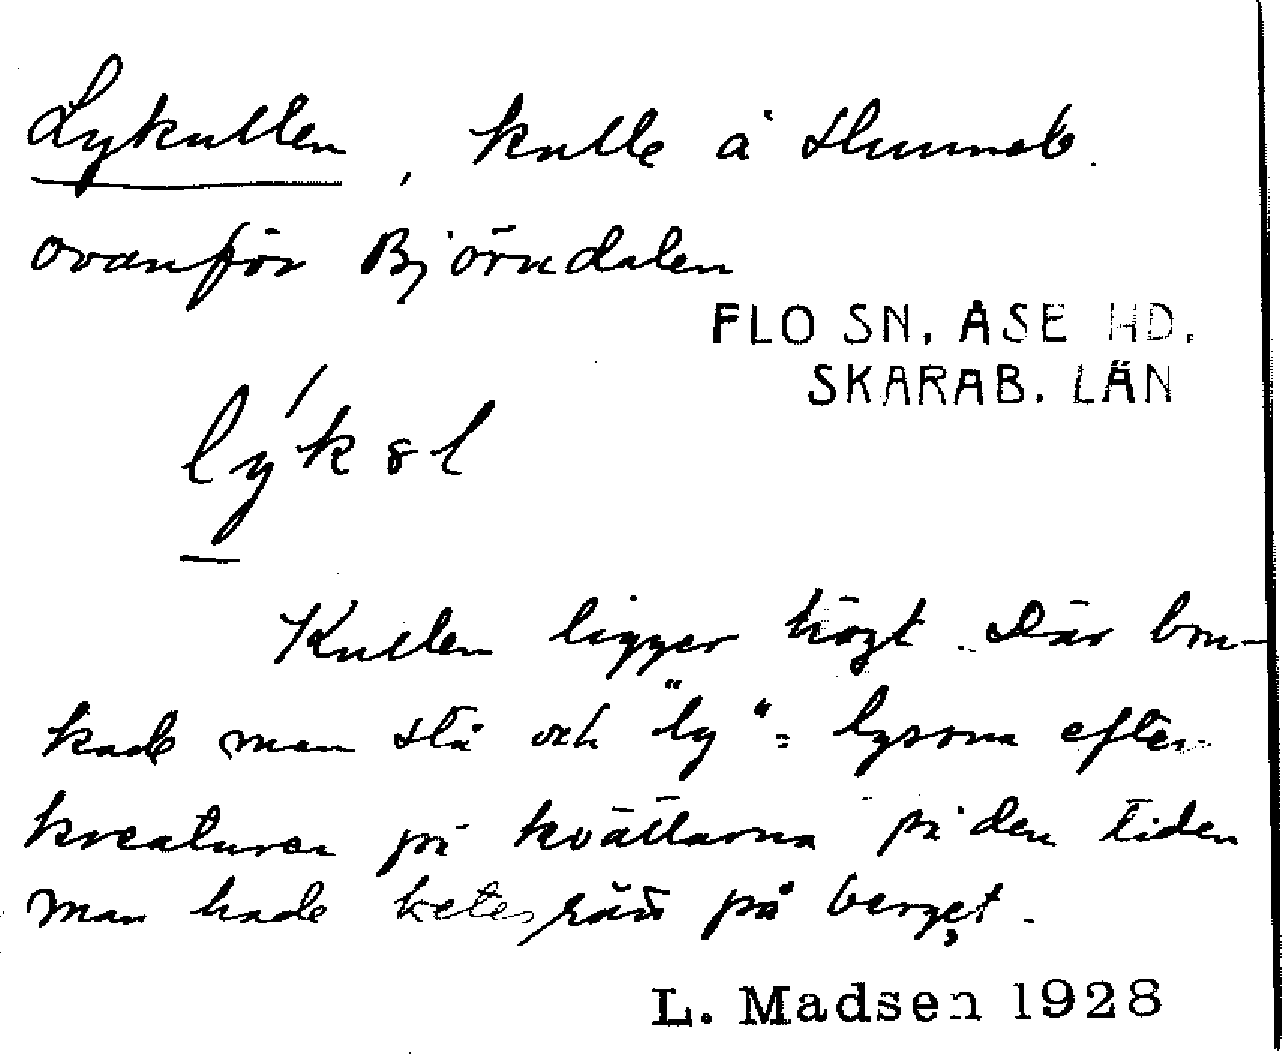 Lykullen, kulle å Hunneb.
ovanför Björndalen
FLO SN. ÅSE HD.
SKARAB. LÄN
Kullen ligger högt. Där bru-
kade man stå och "ly" = lyssna efter
kreaturen på kvällarna på den tiden
man hade betesrätt på berget.
L. Madsen 1928